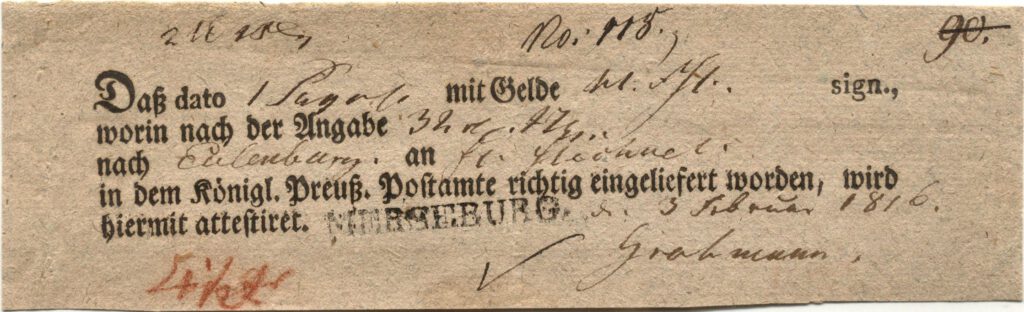 No: 115.
90.
Daß dato 1 mit Gelde sign.,
worin nach der Angabe 32
nach Eulenburg. an
in dem Königl. Preuß. Postamte richtig eingeliefert worden, wird
hiermit attestiret. MERSEBURG. d. 3 Februar 1816.
Grohmann.